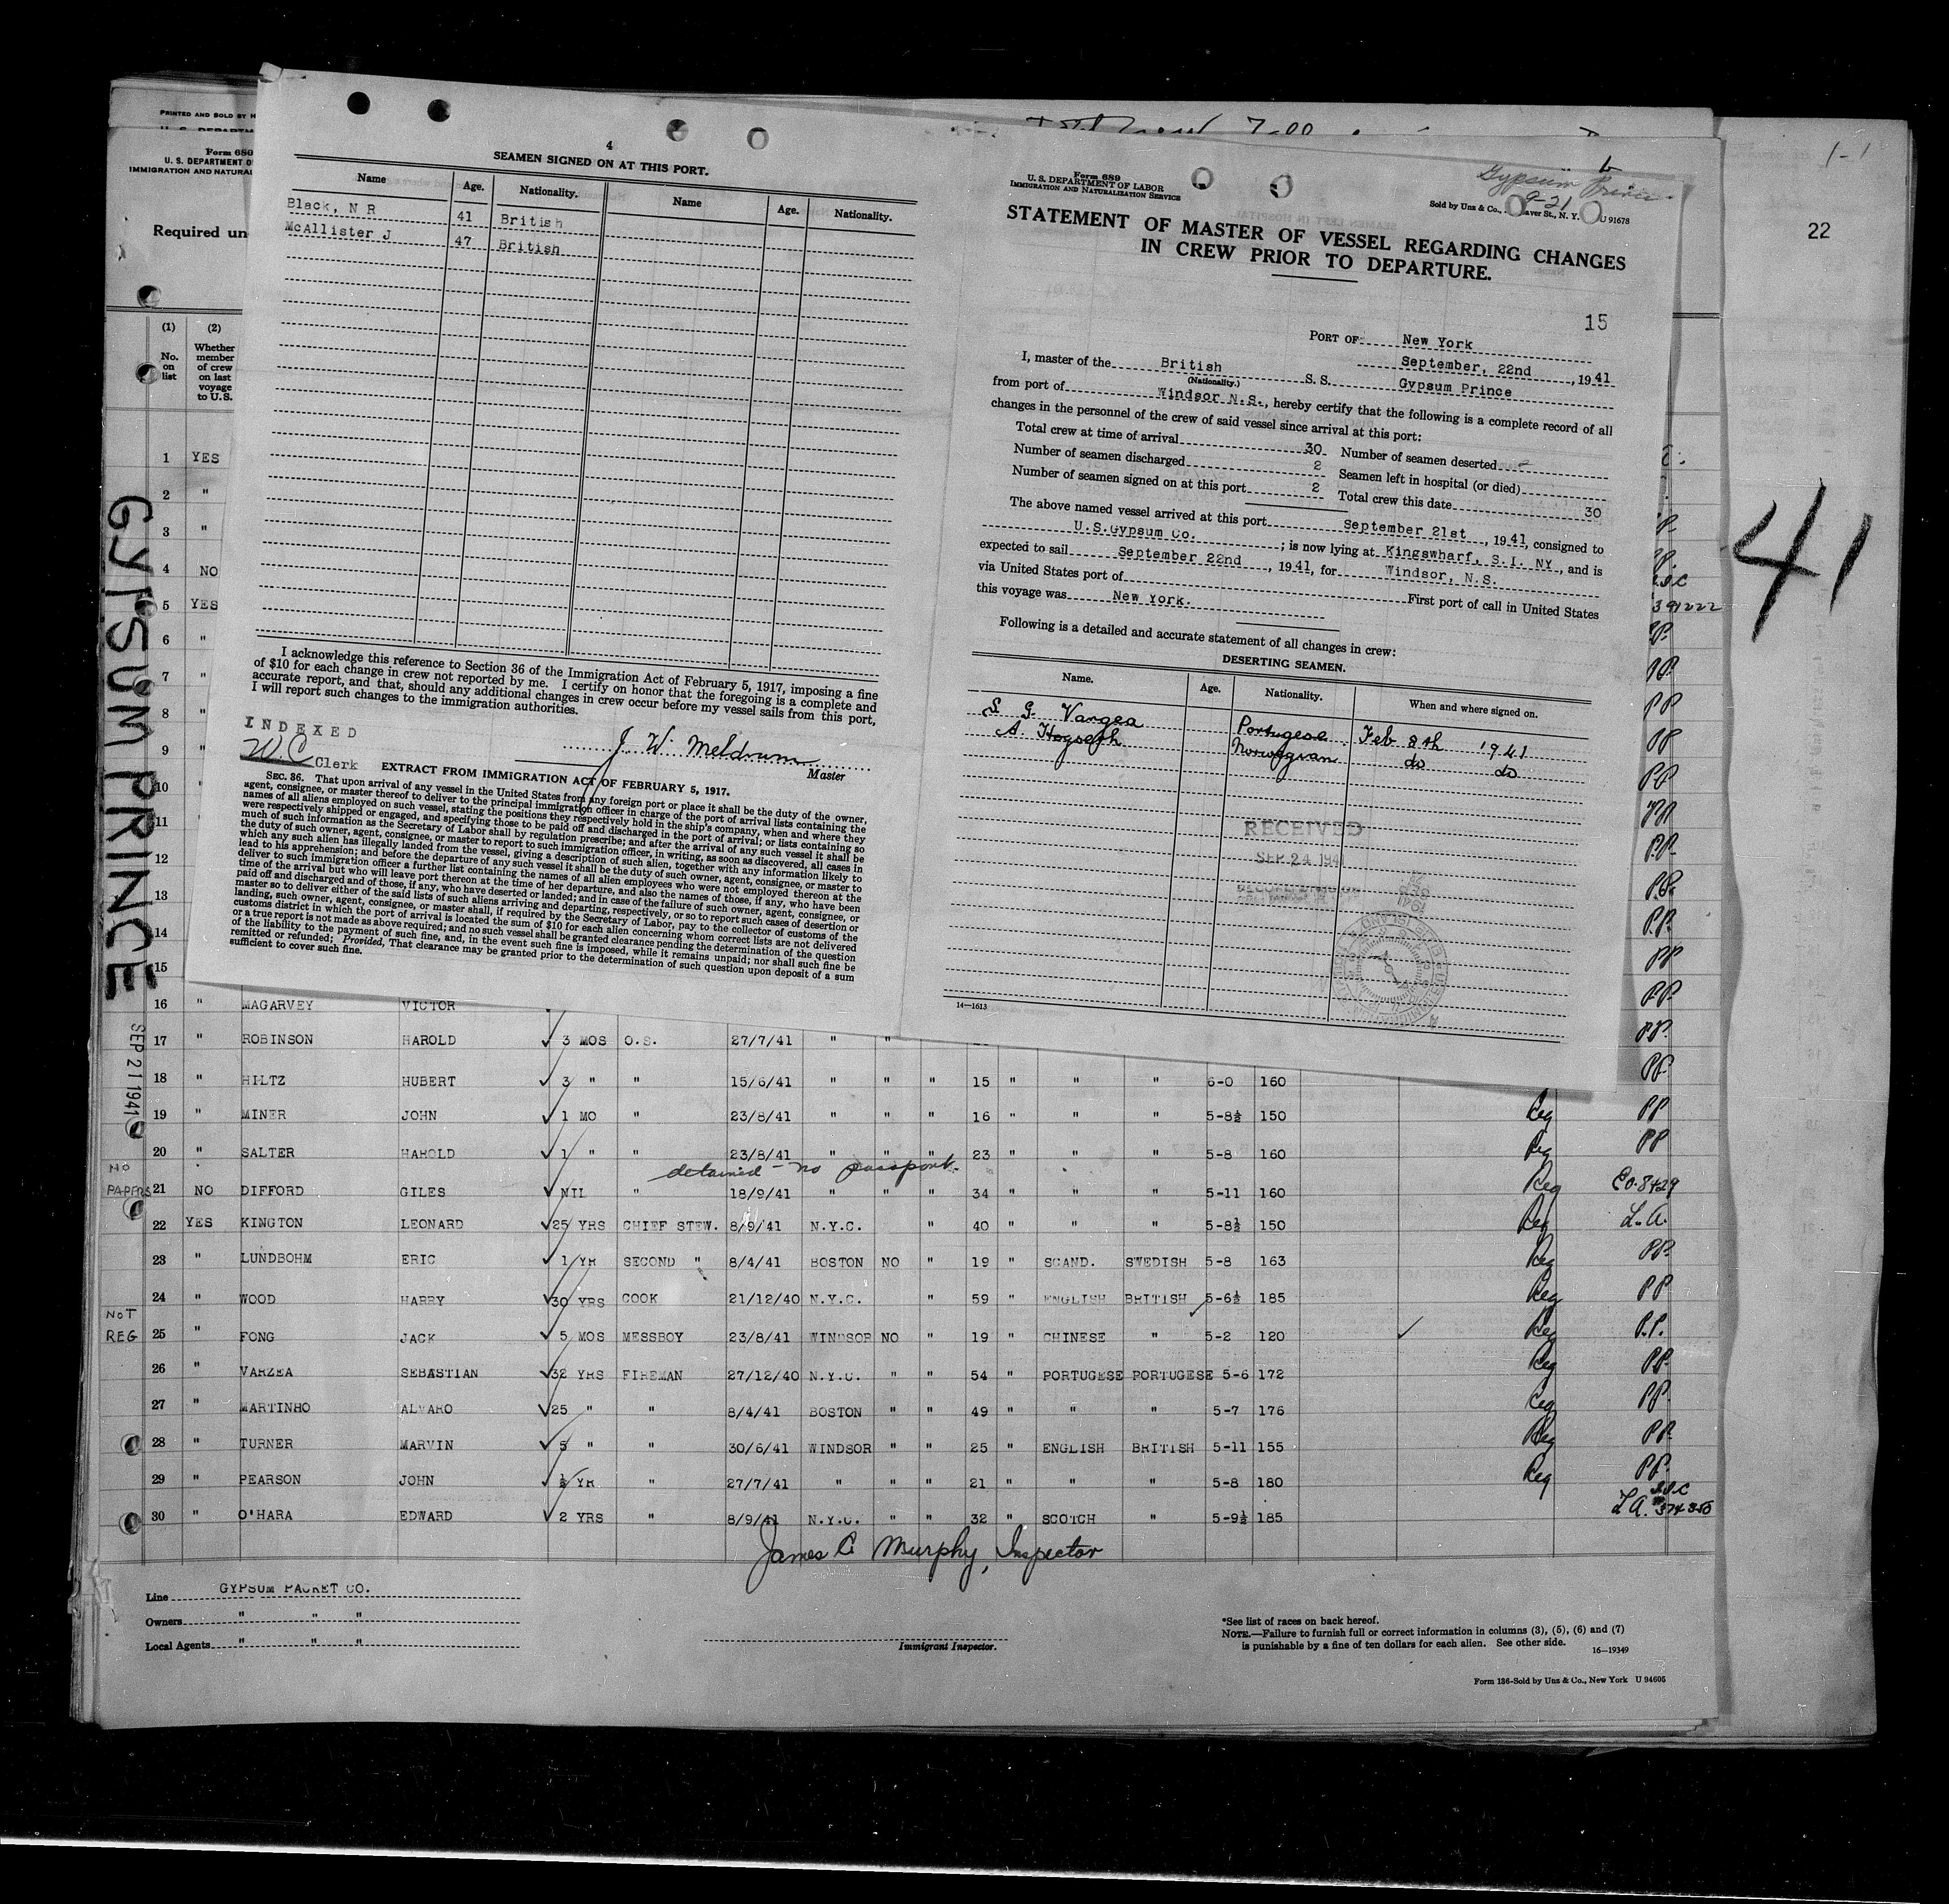 PRINTED AND SOLD BY H
Form 680
U. S. DEPARTMENT O
IMMIGRATION AND NATURAL
Required un
1-1
22
41
GYPSUM PRINCE
SEP 21 1941
4
SEAMEN SIGNED ON AT THIS PORT.
Name Age. Nationality. Name Age. Nationality.
Black, N R 41 British
McAllister J 47 British
I acknowledge this reference to Section 36 of the Immigration Act of February 5, 1917, imposing a fine
of $10 for each change in crew not reported by me. I certify on honor that the foregoing is a complete and
accurate report, and that, should any additional changes in crew occur before my vessel sails from this port,
I will report such changes to the immigration authorities.
INDEXED
W.C Clerk
J. W. Meldrum
Master
EXTRACT FROM IMMIGRATION ACT OF FEBRUARY 5, 1917.
SEC. 36. That upon arrival of any vessel in the United States from any foreign port or place it shall be the duty of the owner,
agent, consignee, or master thereof to deliver to the principal immigration officer in charge of the port of arrival lists containing the
names of all aliens employed on such vessel, stating the positions they respectively hold in the ship's company, when and where they
were respectively shipped or engaged, and specifying those to be paid off and discharged in the port of arrival; or lists containing so
much of such information as the Secretary of Labor shall by regulation prescribe; and after the arrival of any such vessel it shall be
the duty of such owner, agent, consignee, or master to report to such immigration officer, in writing, as soon as discovered, all cases in
which any such alien has illegally landed from the vessel, giving a description of such alien, together with any information likely to
lead to his apprehension; and before the departure of any such vessel it shall be the duty of such owner, agent, consignee, or master to
deliver to such immigration officer a further list containing the names of all alien employees who were not employed thereon at the
time of the arrival but who will leave port thereon at the time of her departure, and also the names of those, if any, who have been
paid off and discharged and of those, if any, who have deserted or landed; and in case of the failure of such owner, agent, consignee, or
master so to deliver either of the said lists of such aliens arriving and departing, respectively, or so to report such cases of desertion or
landing, such owner, agent, consignee, or master shall, if required by the Secretary of Labor, pay to the collector of customs of the
customs district in which the port of arrival is located the sum of $10 for each alien concerning whom correct lists are not delivered
or a true report is not made as above required; and no such vessel shall be granted clearance pending the determination of the question
of the liability to the payment of such fine, and, in the event such fine is imposed, while it remains unpaid; nor shall such fine be
remitted or refunded; Provided, That clearance may be granted prior to the determination of such question upon deposit of a sum
sufficient to cover such fine.
Form 689
U. S. DEPARTMENT OF LABOR
IMMIGRATION AND NATURALIZATION SERVICE
Gypsum Prince
9-21
Sold by Unz & Co., aver St., N. Y. U 91678
STATEMENT OF MASTER OF VESSEL REGARDING CHANGES
IN CREW PRIOR TO DEPARTURE.
15
PORT OF New York
September, 22nd, 1941
I, master of the British S. S. Gypsum Prince
(Nationality.)
from port of Windsor N.S., hereby certify that the following is a complete record of all
changes in the personnel of the crew of said vessel since arrival at this port:
Total crew at time of arrival 30 Number of seamen deserted
Number of seamen discharged 2 Seamen left in hospital (or died)
Number of seamen signed on at this port 2 Total crew this date 30
The above named vessel arrived at this port September 21st, 1941, consigned to
U.S.Gypsum Co. ; is now lying at Kingswharf, S.I. NY, and is
expected to sail September 22nd, 1941, for Windsor, N.S.
via United States port of First port of call in United States
this voyage was New York.
Following is a detailed and accurate statement of all changes in crew:
DESERTING SEAMEN.
Name. Age. Nationality. When and where signed on.
S. G. Vargea Portugese Feb 8th 1941
A. Hogseth Norwegian do do
RECEIVED
SEP 24 1941
14—1613
(1) (2)
No. on list
Whether member of crew on last voyage to U.S.
1 YES
2 "
3 " P.
4 NO PP.
5 YES 391222
6 " P.
7 " PP.
8 " PP
9 " PP
10 PP
11 PP
12 P.P.
13 P.P.
14 P.P.
15 PP
16 " MAGARVEY VICTOR P.P.
17 " ROBINSON HAROLD 3 MOS O.S. 27/7/41 " " PP.
18 " HILTZ HUBERT 3 " " 15/6/41 " " " 15 " " " 6-0 160 PP.
19 " MINER JOHN 1 MO " 23/8/41 " " " 16 " " " 5-8½ 150 Reg PP
20 " SALTER HAROLD 1 " " 23/8/41 " " " 23 " " " 5-8 160 Reg PP
detained - no passport.
NO PAPERS 21 NO DIFFORD GILES NIL " 18/9/41 " " " 34 " " " 5-11 160 Reg CO.8429
22 YES KINGTON LEONARD 25 YRS CHIEF STEW. 8/9/41 N.Y.C. " 40 " " " 5-8½ 150 Reg L.A.
23 " LUNDBOHM ERIC 1 YR SECOND " 8/4/41 BOSTON NO " 19 " SCAND. SWEDISH 5-8 163 Reg PP.
24 " WOOD HARRY 30 YRS COOK 21/12/40 N.Y.C. " 59 " ENGLISH BRITISH 5-6½ 185 Reg PP
NOT REG 25 " FONG JACK 5 MOS MESSBOY 23/8/41 WINDSOR NO " 19 " CHINESE " 5-2 120 Reg P.P.
26 " VARZEA SEBASTIAN 32 YRS FIREMAN 27/12/40 N.Y.C. " " 54 " PORTUGESE PORTUGESE 5-6 172 Reg PP.
27 " MARTINHO ALVARO 25 " " 8/4/41 BOSTON " " 49 " " " 5-7 176 Reg PP.
28 " TURNER MARVIN 5 " " 30/6/41 WINDSOR " " 25 " ENGLISH BRITISH 5-11 155 Reg PP.
29 " PEARSON JOHN ½ YR " 27/7/41 " " " 21 " " " 5-8 180 Reg PP.
30 " O'HARA EDWARD 2 YRS " 8/9/41 N.Y.C. " " 32 " SCOTCH " 5-9½ 185 L.A.
James C Murphy, Inspector
Line GYPSUM PACKET CO.
Owners " " "
Local Agents " " "
Immigrant Inspector.
*See list of races on back hereof.
NOTE.—Failure to furnish full or correct information in columns (3), (5), (6) and (7)
is punishable by a fine of ten dollars for each alien. See other side.
16—19349
Form 186-Sold by Unz & Co., New York U 94605